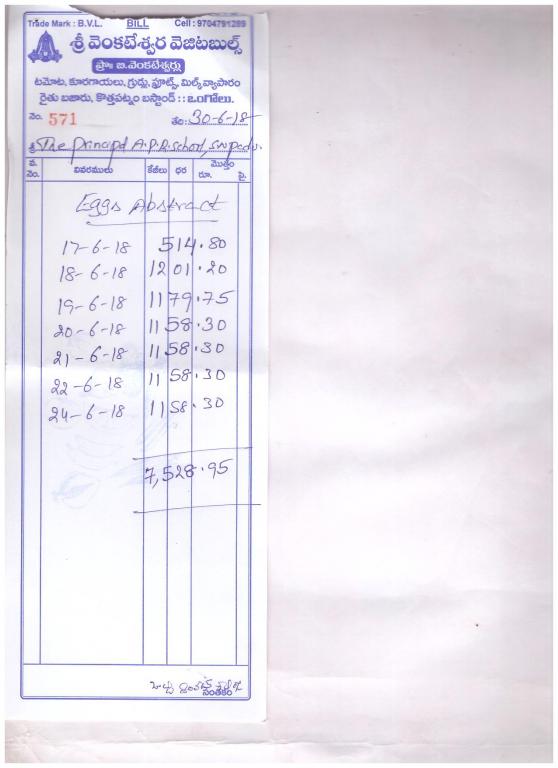 Trade Mark : B.V.L. BILL Cell : 9704791289
శ్రీ వెంకటేశ్వర వెజిటబుల్స్
ప్రొః బి.వెంకటేశ్వర్లు
టమోట, కూరగాయలు, గ్రుడ్లు, ఫ్రూట్స్, మిల్క్ వ్యాపారం
రైతు బజారు, కొత్తపట్నం బస్టాండ్ :: ఒంగోలు.
నెం. 571 తేది: 30-6-18
శ్రీ The Principal A.P.R. School,
వ. నెం. వివరములు కేజీలు ధర మొత్తం రూ. పై.
Eggs Abstract
17-6-18 514.80
18-6-18 1201.20
19-6-18 1179.75
20-6-18 1158.30
21-6-18 1158.30
22-6-18 1158.30
24-6-18 1158.30
7,528.95
సంతకం